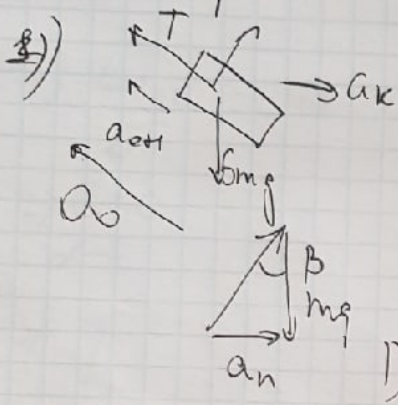 T
a_к
a_отн
6mg
a_0
β
mg
a_n
1)